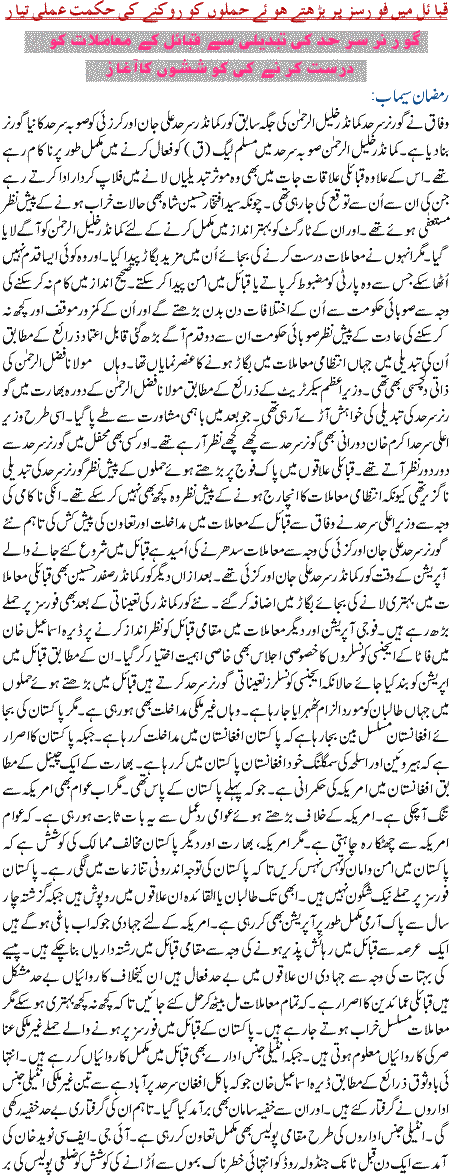 قبائل میں فورسز پر بڑھتے ہوئے حملوں کو روکنے کی حکمت عملی تیار
گورنر سرحد کی تبدیلی سے قبائل کے معاملات کو
درست کرنے کی کوششوں کا آغاز
رمضان سیماب:
وفاق نے گورنر سرحد کمانڈر خلیل الرحمٰن کی جگہ سابق کور کمانڈر سرحد علی جان اورکزئی کو صوبہ سرحد کا نیا گورنر
بنا دیا ہے۔ کمانڈر خلیل الرحمٰن صوبہ سرحد میں مسلم لیگ (ق) کو فعال کرنے میں مکمل طور پر ناکام رہے
تھے۔ اس کے علاوہ قبائلی علاقہ جات میں بھی وہ موثر تبدیلیاں لانے میں فلاپ کردار ادا کرتے رہے
جن کی ان سے اُن سے توقع کی جارہی تھی۔ چونکہ سید افتخار حسین شاہ بھی حالات خراب ہونے کے پیش نظر
مستعفی ہوئے تھے۔ اور ان کے ٹارگٹ کو بہتر انداز میں مکمل کرنے کے لئے کمانڈر خلیل الرحمٰن کو آگے لایا
گیا۔ مگر انہوں نے معاملات درست کرنے کی بجائے اُن میں مزید بگاڑ پیدا کیا۔ اور وہ کوئی ایسا قدم نہیں
اُٹھا سکے جس سے وہ پارٹی کو مضبوط کر پاتے یا قبائل میں امن پیدا کر سکتے۔ صحیح انداز میں کام نہ کر سکنے کی
وجہ سے صوبائی حکومت سے اُن کے اختلافات دن بدن بڑھتے گئے اور اُن کے کمزور موقف اور کچھ نہ
کر سکنے کی عادت کے پیش نظر صوبائی حکومت ان سے دو قدم آگے بڑھ گئی قابل اعتماد ذرائع کے مطابق
اُن کی تبدیلی میں جہاں انتظامی معاملات میں بگاڑ ہونے کا عنصر نمایاں تھا۔ وہاں مولانا فضل الرحمٰن کی
ذاتی دلچسپی بھی تھی۔ وزیر اعظم سیکرٹریٹ کے ذرائع کے مطابق مولانا فضل الرحمٰن کے دورہ بھارت میں گو
رنر سرحد کی تبدیلی کی خواہش آڑے آرہی تھی۔ جو بعد میں باہمی مشاورت سے طے پا گیا۔ اسی طرح وزیر
اعلی سرحد اکرم خان دورانی بھی گورنر سرحد سے کھچے کھچے نظر آرہے تھے۔ اور کسی بھی محفل میں گورنر سرحد سے
دور دور نظر آتے تھے۔ قبائلی علاقوں میں پاک فوج پر بڑھتے ہوئے حملوں کے پیش نظر گورنر سرحد کی تبدیلی
ناگزیر تھی کیونکہ انتظامی معاملات کا انچارج ہونے کے پیش نظر وہ کچھ بھی نہیں کر سکے تھے۔ انکی ناکامی کی
وجہ سے وزیر اعلی سرحد نے وفاق سے قبائل کے معاملات میں مداخلت اور تعاون کی پیش کش کی تاہم نئے
گورنر سرحد علی جان اورکزئی کی وجہ سے معاملات سدھرنے کی اُمید ہے قبائل میں شروع کئے جانے والے
آپریشن کے وقت کور کمانڈر سرحد علی جان اورکزئی تھے۔ بعد ازاں دیگر کور کمانڈر صفدر حسین بھی قبائلی معاملا
ت میں بہتری لانے کی بجائے بگاڑ میں اضافہ کر گئے۔ نئے کور کمانڈر کی تعیناتی کے بعد بھی فورسز پر حملے
بڑھ رہے ہیں۔ فوجی آپریشن اور دیگر معاملات میں مقامی قبائل کو نظر انداز کرنے پر ڈیرہ اسماعیل خان
میں فاٹا کے ایجنسی کونسلروں کا خصوصی اجلاس بھی خاصی اہمیت اختیار کر گیا۔ ان کے مطابق قبائل میں
آپریشن کو بند کیا جائے حالانکہ ایجنسی کونسلرز تعیناتی گورنر سرحد کرتے ہیں قبائل میں بڑھتے ہوئے حملوں
میں جہاں طالبان کو مورد الزام ٹھہرایا جا رہا ہے۔ وہاں غیر ملکی مداخلت بھی ہو رہی ہے۔ مگر پاکستان کی بجا
ئے افغانستان مسلسل بین بجا رہا ہے کہ پاکستان افغانستان میں مداخلت کر رہا ہے۔ جبکہ پاکستان کا اصرار
ہے کہ ہیروئین اور اسلحہ کی سمگلنگ خود افغانستان پاکستان میں کر رہا ہے۔ بھارت کے ایک چینل کے مطا
بق افغانستان میں امریکہ کی حکمرانی ہے۔ جو کہ پہلے پاکستان کے پاس تھی۔ مگر اب عوام بھی امریکہ سے
تنگ آ چکی ہے۔ امریکہ کے خلاف بڑھتے ہوئے عوامی ردعمل سے یہ بات ثابت ہو رہی ہے۔ کہ عوام
امریکہ سے چھٹکارہ چاہتی ہے۔ مگر امریکہ، بھارت اور دیگر پاکستان مخالف ممالک کی کوشش ہے کہ
پاکستان میں امن وامان کو تہس نہس کریں تاکہ پاکستان کی توجہ اندرونی تنازعات میں لگی رہے۔ پاکستان
فورسز پر حملے نیک شگون نہیں ہیں۔ ابھی تک طالبان یا القائدہ ان علاقوں میں روپوش ہیں جبکہ گزشتہ چار
سال سے پاک آرمی مکمل طور پر آپریشن بھی کر رہی ہے۔ امریکہ کے لئے جہادی جو کہ اب باغی ہو گئے ہیں
ایک عرصہ سے قبائل میں رہائش پذیر ہونے کی وجہ سے مقامی قبائل میں رشتہ داریاں بنا چکے ہیں۔ پیسے
کی بہتات کی وجہ سے جہادی ان علاقوں میں بے حد فعال ہیں ان کیخلاف کاروائیاں بے حد مشکل
ہیں قبائلی عمائدین کا اصرار ہے۔ کہ تمام معاملات مل بیٹھ کر حل کئے جائیں تاکہ کچھ نہ کچھ بہتری ہو سکے مگر
معاملات مسلسل خراب ہوتے جا رہے ہیں۔ پاکستان کے قبائل میں فورسز پر ہونے والے حملے غیر ملکی عنا
صر کی کاروائیاں معلوم ہوتی ہیں۔ جبکہ انٹیلی جنس ادارے بھی قبائل میں مکمل کاروائیاں کر رہے ہیں۔ انتہا
ئی باوثوق ذرائع کے مطابق ڈیرہ اسماعیل خان جو کہ بالکل افغان سرحد پر آباد ہے سے تین غیر ملکی انٹیلی جنس
اداروں نے گرفتار کئے ہیں۔ اور ان سے خفیہ سامان بھی برآمد کیا گیا۔ تاہم ان کی گرفتاری بے حد خفیہ رکھی
گئی۔ انٹیلی جنس اداروں کی طرح مقامی پولیس بھی مکمل تعاون کر رہی ہے۔ آئی۔ جی۔ ایف سی نوید خان کی
آمد سے ایک دن قبل ٹانک جنڈولہ روڈ کو انتہائی خطرناک بموں سے اُڑانے کی کوشش کو ضلعی پولیس کی بر